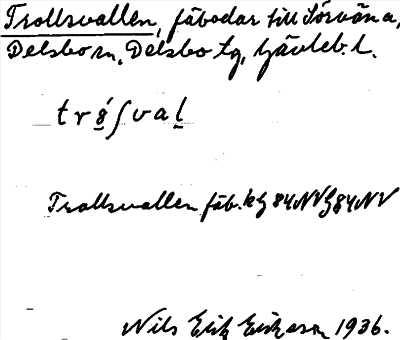 Trollsvallen, fäbodar till Sörväna,
Delsbo sn, Delsbo tg, Gävleb. l.
Trollsvallen fäb. 84NV 84NV
Nils Erik Eriksson 1936.